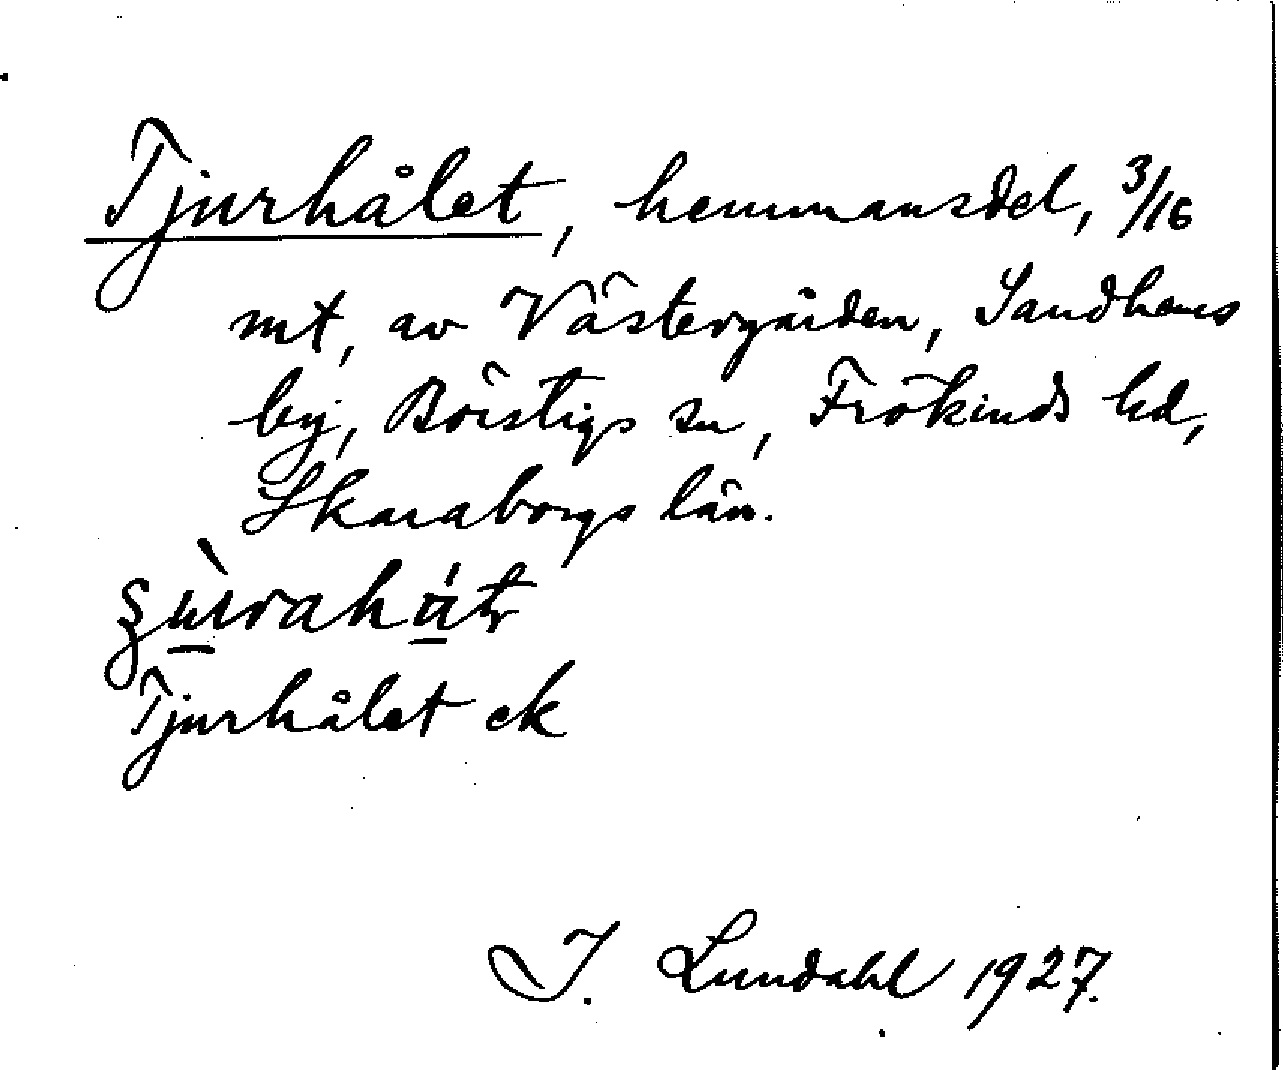 Tjurhålet, hemmansdel, 3/16
mt, av Västergården, Sandhems
by, Börstigs sn, Frökinds hd,
Skaraborgs län.
Tjurhålet ek
I. Lundahl 1927.